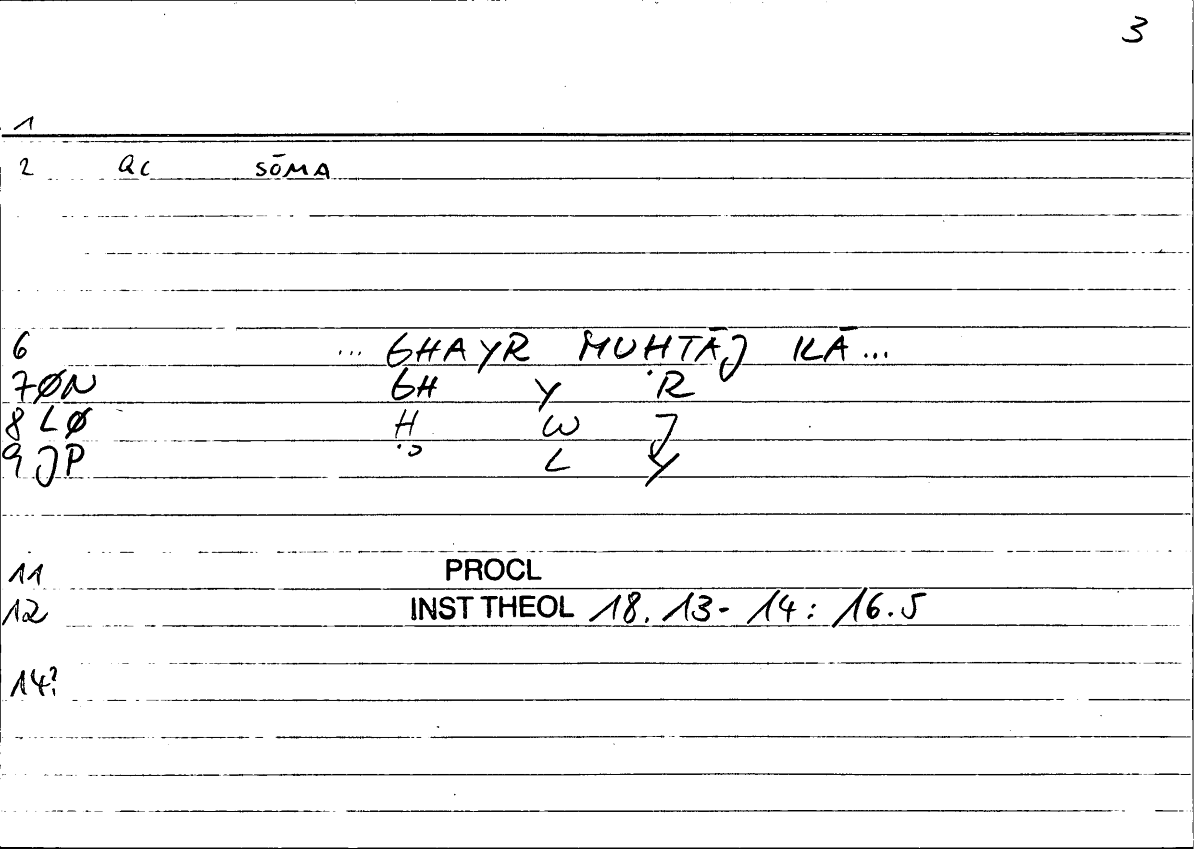 3
1
2 QC SŌMA
6 ... GHAYR MUḤTĀJ ILĀ...
7 ØN GH Y R
8 LØ Ḥ W J
9 JP L Y
11 PROCL
12 INST THEOL 18.13-14: 16.5
14?